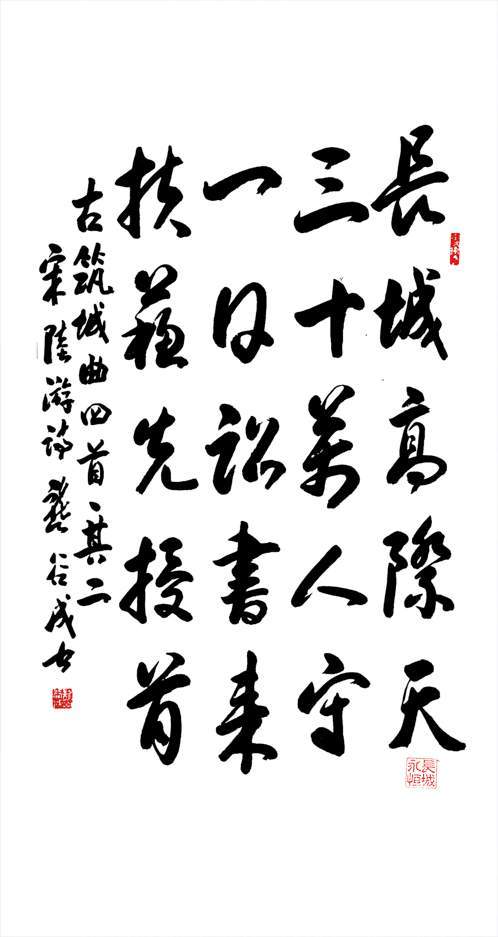 長城高際天
三十萬人守
一日詔書来
扶蘇先授首
古筑城曲四首其二
宋陸游詩龔谷成书
長城永恒